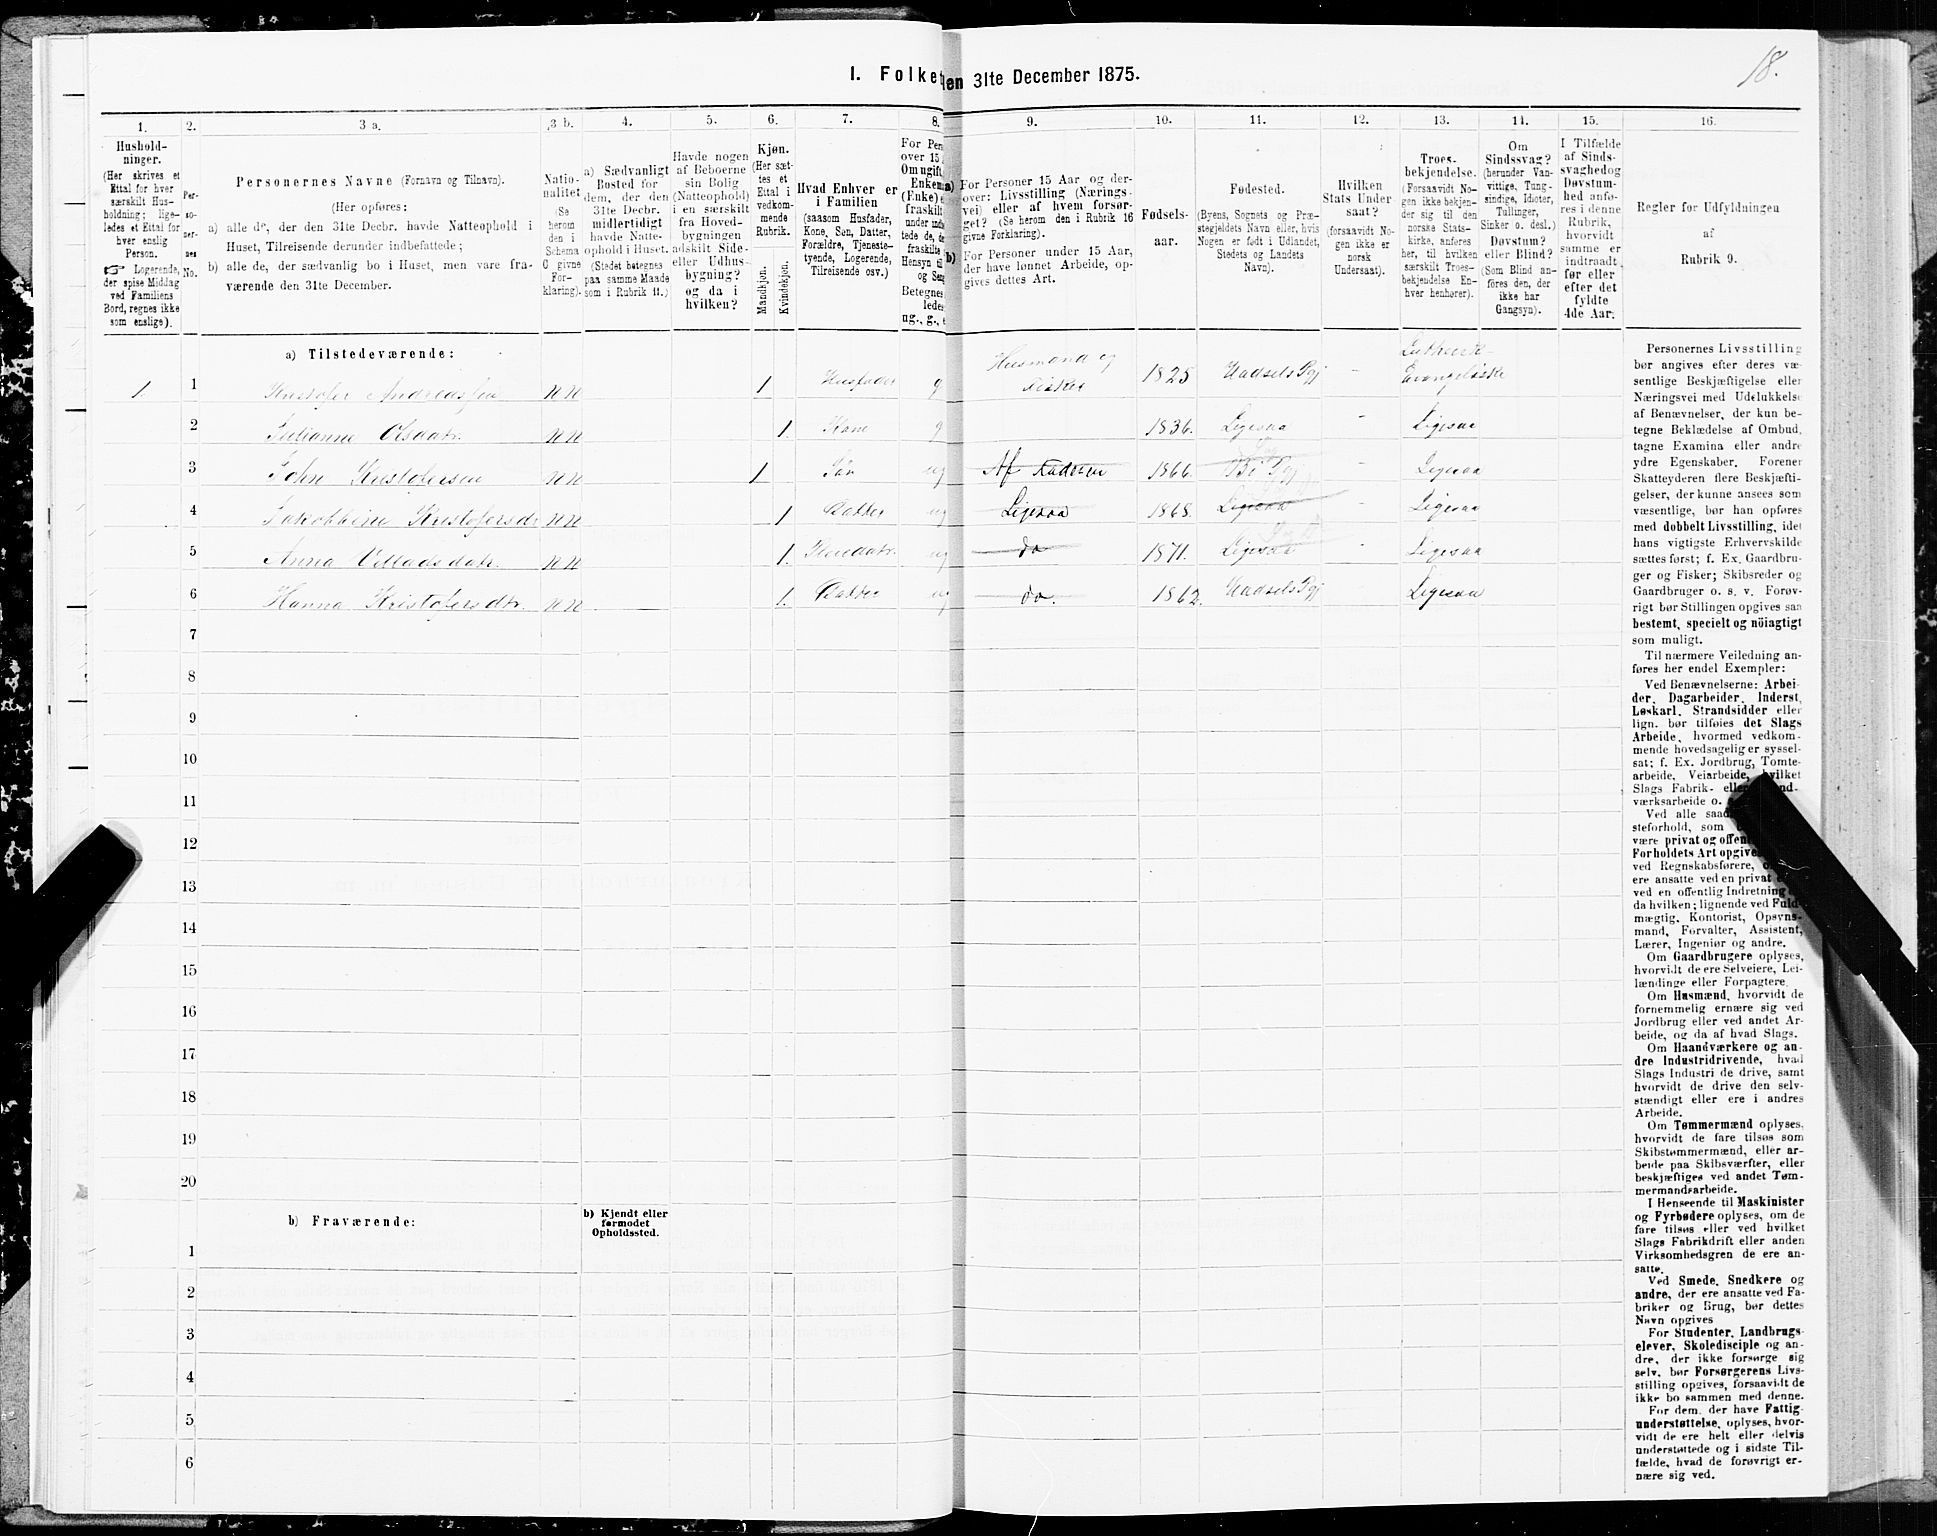 18.
1. Folket
en 31te December 1875.
1. 2. 3 a. 3 b. 4. 5. 6. 7. 8. 9. 10. 11. 12. 13. 14. 15. 16.
Hushold-
ninger.
(Her skrives et
Ettal for hver
særskilt Hus-
holdning; lige-
ledes et Ettal for
hver enslig
Person.
☞ Logerende,
der spise Middag
ved Familiens
Bord, regnes ikke
som enslige).
Per-
so-
ner-
nes
No.
Personernes Navne (Fornavn og Tilnavn).
(Her opføres:
a) alle de, der den 31te Decbr. havde Natteophold i
Huset, Tilreisende derunder indbefattede;
b) alle de, der sædvanlig bo i Huset, men vare fra-
værende den 31te December.
Natio-
nalitet
(Se
herom
den i
Schema
C givne
For-
klaring).
a) Sædvanligt
Bosted for
dem, der den
31te Decbr.
midlertidigt
havde Natte-
ophold i Huset.
(Stedet betegnes
paa samme Maade
som i Rubrik 11.)
Havde nogen
af Beboerne
sin Bolig
(Natteophold)
i en særskilt
fra Hoved-
bygningen
adskilt Side-
eller Udhus-
bygning?
og da i
hvilken?
Kjøn.
(Her sæt-
tes et
Ettal i
vedkom-
mende
Rubrik.
Mandkjøn.
Kvindekjøn.
Hvad Enhver er
i Familien
(saasom Husfader,
Kone, Søn, Datter,
Forældre, Tjeneste-
tyende, Logerende,
Tilreisende osv.)
For Per
over 15
Om ugift,
Enkem
(Enke)
fraskilt
under
tede de,
fraskilte
Hensyn til
og Seng
Betegnes
ledes
ug., g., e
a) For Personer 15 Aar og der-
over: Livsstilling (Nærings-
vei) eller af hvem forsør-
get? (Se herom den i Rubrik 16
givne Forklaring).
b) For Personer under 15 Aar,
der have lønnet Arbeide, op-
gives dettes Art.
Fødsels-
aar.
Fødested.
(Byens, Sognets og Præ-
stegjeldets Navn eller, hvis
Nogen er født i Udlandet,
Stedets og Landets
Navn).
Hvilken
Stats Under-
saat?
(forsaavidt No-
gen ikke er
norsk
Undersaat).
Troes-
bekjendelse.
(Forsaavidt No-
gen ikke bekjen-
der sig til den
norske Stats-
kirke, anføres
her, til hvilken
særskilt Troes-
bekjendelse En-
hver henhører).
Om
Sindssvag?
(herunder Van-
vittige, Tung-
sindige, Idioter,
Tullinger,
Sinker o. desl.)
Døvstum?
eller Blind?
(Som Blind an-
føres den, der
ikke har
Gangsyn).
I Tilfælde
af Sinds-
svaghedog
Døvstum-
hed anfø-
res i denne
Rubrik,
hvorvidt
samme er
indtraadt
før eller
efter det
fyldte
4de Aar.
Regler for Udfyldningen
af
Rubrik 9.
a) Tilstedeværende:
1. 1 Kristofer Andreassen nn 1 Husfader g Husmand og Fisker 1825 Hadsels Pgj - Luthersk-Evangeliske
2 Julianne Olsdatr. nn 1. Kone g 1836. Ligesaa - Ligesaa
3 John Kristofersen nn 1 Søn ug Af Faderen 1866. Bø Pgj - Ligesaa
4 Jakobbine Kristofersdr nn 1 Datter ug Ligesaa 1868. Ligesaa - Ligesaa
5 Anna Villadsdatr. nn 1. Pleiedatr. ug do 1871. Ligesaa - Ligesaa
6 Hanna Kristofersdtr. nn 1. Datter ug do. 1862. Hadsels Pgj Ligesaa
7
8
9
10
11
12
13
14
15
16
17
18
19
20
b) Fraværende:
b) Kjendt eller
formodet
Opholdssted.
1
2
3
4
5
6
Personernes Livsstilling
bør angives efter deres væ-
sentlige Beskjæftigelse eller
Næringsvei med Udelukkelse
af Benævnelser, der kun be-
tegne Beklædelse af Ombud,
tagne Examina eller andre
ydre Egenskaber. Forener
Skatteyderen flere Beskjæfti-
gelser, der kunne ansees som
væsentlige, bør han opføres
med dobbelt Livsstilling, idet
hans vigtigste Erhvervskilde
sættes først; f. Ex. Gaardbru-
ger og Fisker; Skibsreder og
Gaardbruger o. s. v. Forøv-
rigt bør Stillingen opgives saa
bestemt, specielt og nöiagtigt
som muligt.
Til nærmere Veiledning an-
føres her endel Exempler:
Ved Benævnelserne: Arbei-
der, Dagarbeider, Inderst,
Løskarl, Strandsidder eller
lign. bør tilføies det Slags
Arbeide, hvormed vedkom-
mende hovedsagelig er syssel-
sat; f. Ex. Jordbrug, Tomte-
arbeide, Veiarbeide, hvilket
Slags Fabrik- eller
værksarbeide o.
Ved alle saad
steforhold, som
være privat og offen
Forholdets Art opgives
ved Regnskabsførere,
ere ansatte ved en privat
ved en offentlig Indretning
da hvilken; lignende ved Fuld-
mægtig, Kontorist, Opsyns-
mand, Forvalter, Assistent,
Lærer, Ingeniør og andre.
Om Gaardbrugere oplyses,
hvorvidt de ere Selveiere, Lei-
lændinge eller Forpagtere.
Om Husmænd, hvorvidt de
fornemmelig ernære sig ved
Jordbrug eller ved andet Ar-
beide, og da af hvad Slags.
Om Haandværkere og an-
dre Industridrivende, hvad
Slags Industri de drive, samt
hvorvidt de drive den selv-
stændigt eller ere i andres
Arbeide.
Om Tømmermænd oplyses,
hvorvidt de fare tilsøs som
Skibstømmermænd, eller ar-
beide paa Skibsværfter, eller
beskjæftiges ved andet Tøm-
mermandsarbeide.
I Henseende til Maskinister
og Fyrbødere oplyses, om de
fare tilsøs eller ved hvilket
Slags Fabrikdrift eller anden
Virksomhedsgren de ere an-
satte.
Ved Smede, Snedkere og
andre, der ere ansatte ved Fa-
briker og Brug, bør dettes
Navn opgives
For Studenter, Landbrugs-
elever, Skoledisciple og an-
dre, der ikke forsørge sig
selv, bør Forsørgerens Livs-
stilling opgives, forsaavidt de
ikke bo sammen med denne.
For dem, der have Fattig-
understøttelse, oplyses, hvor-
vidt de ere helt eller delvis
understøttede og i sidste Til-
fælde, hvad de forøvrigt er-
nære sig ved.